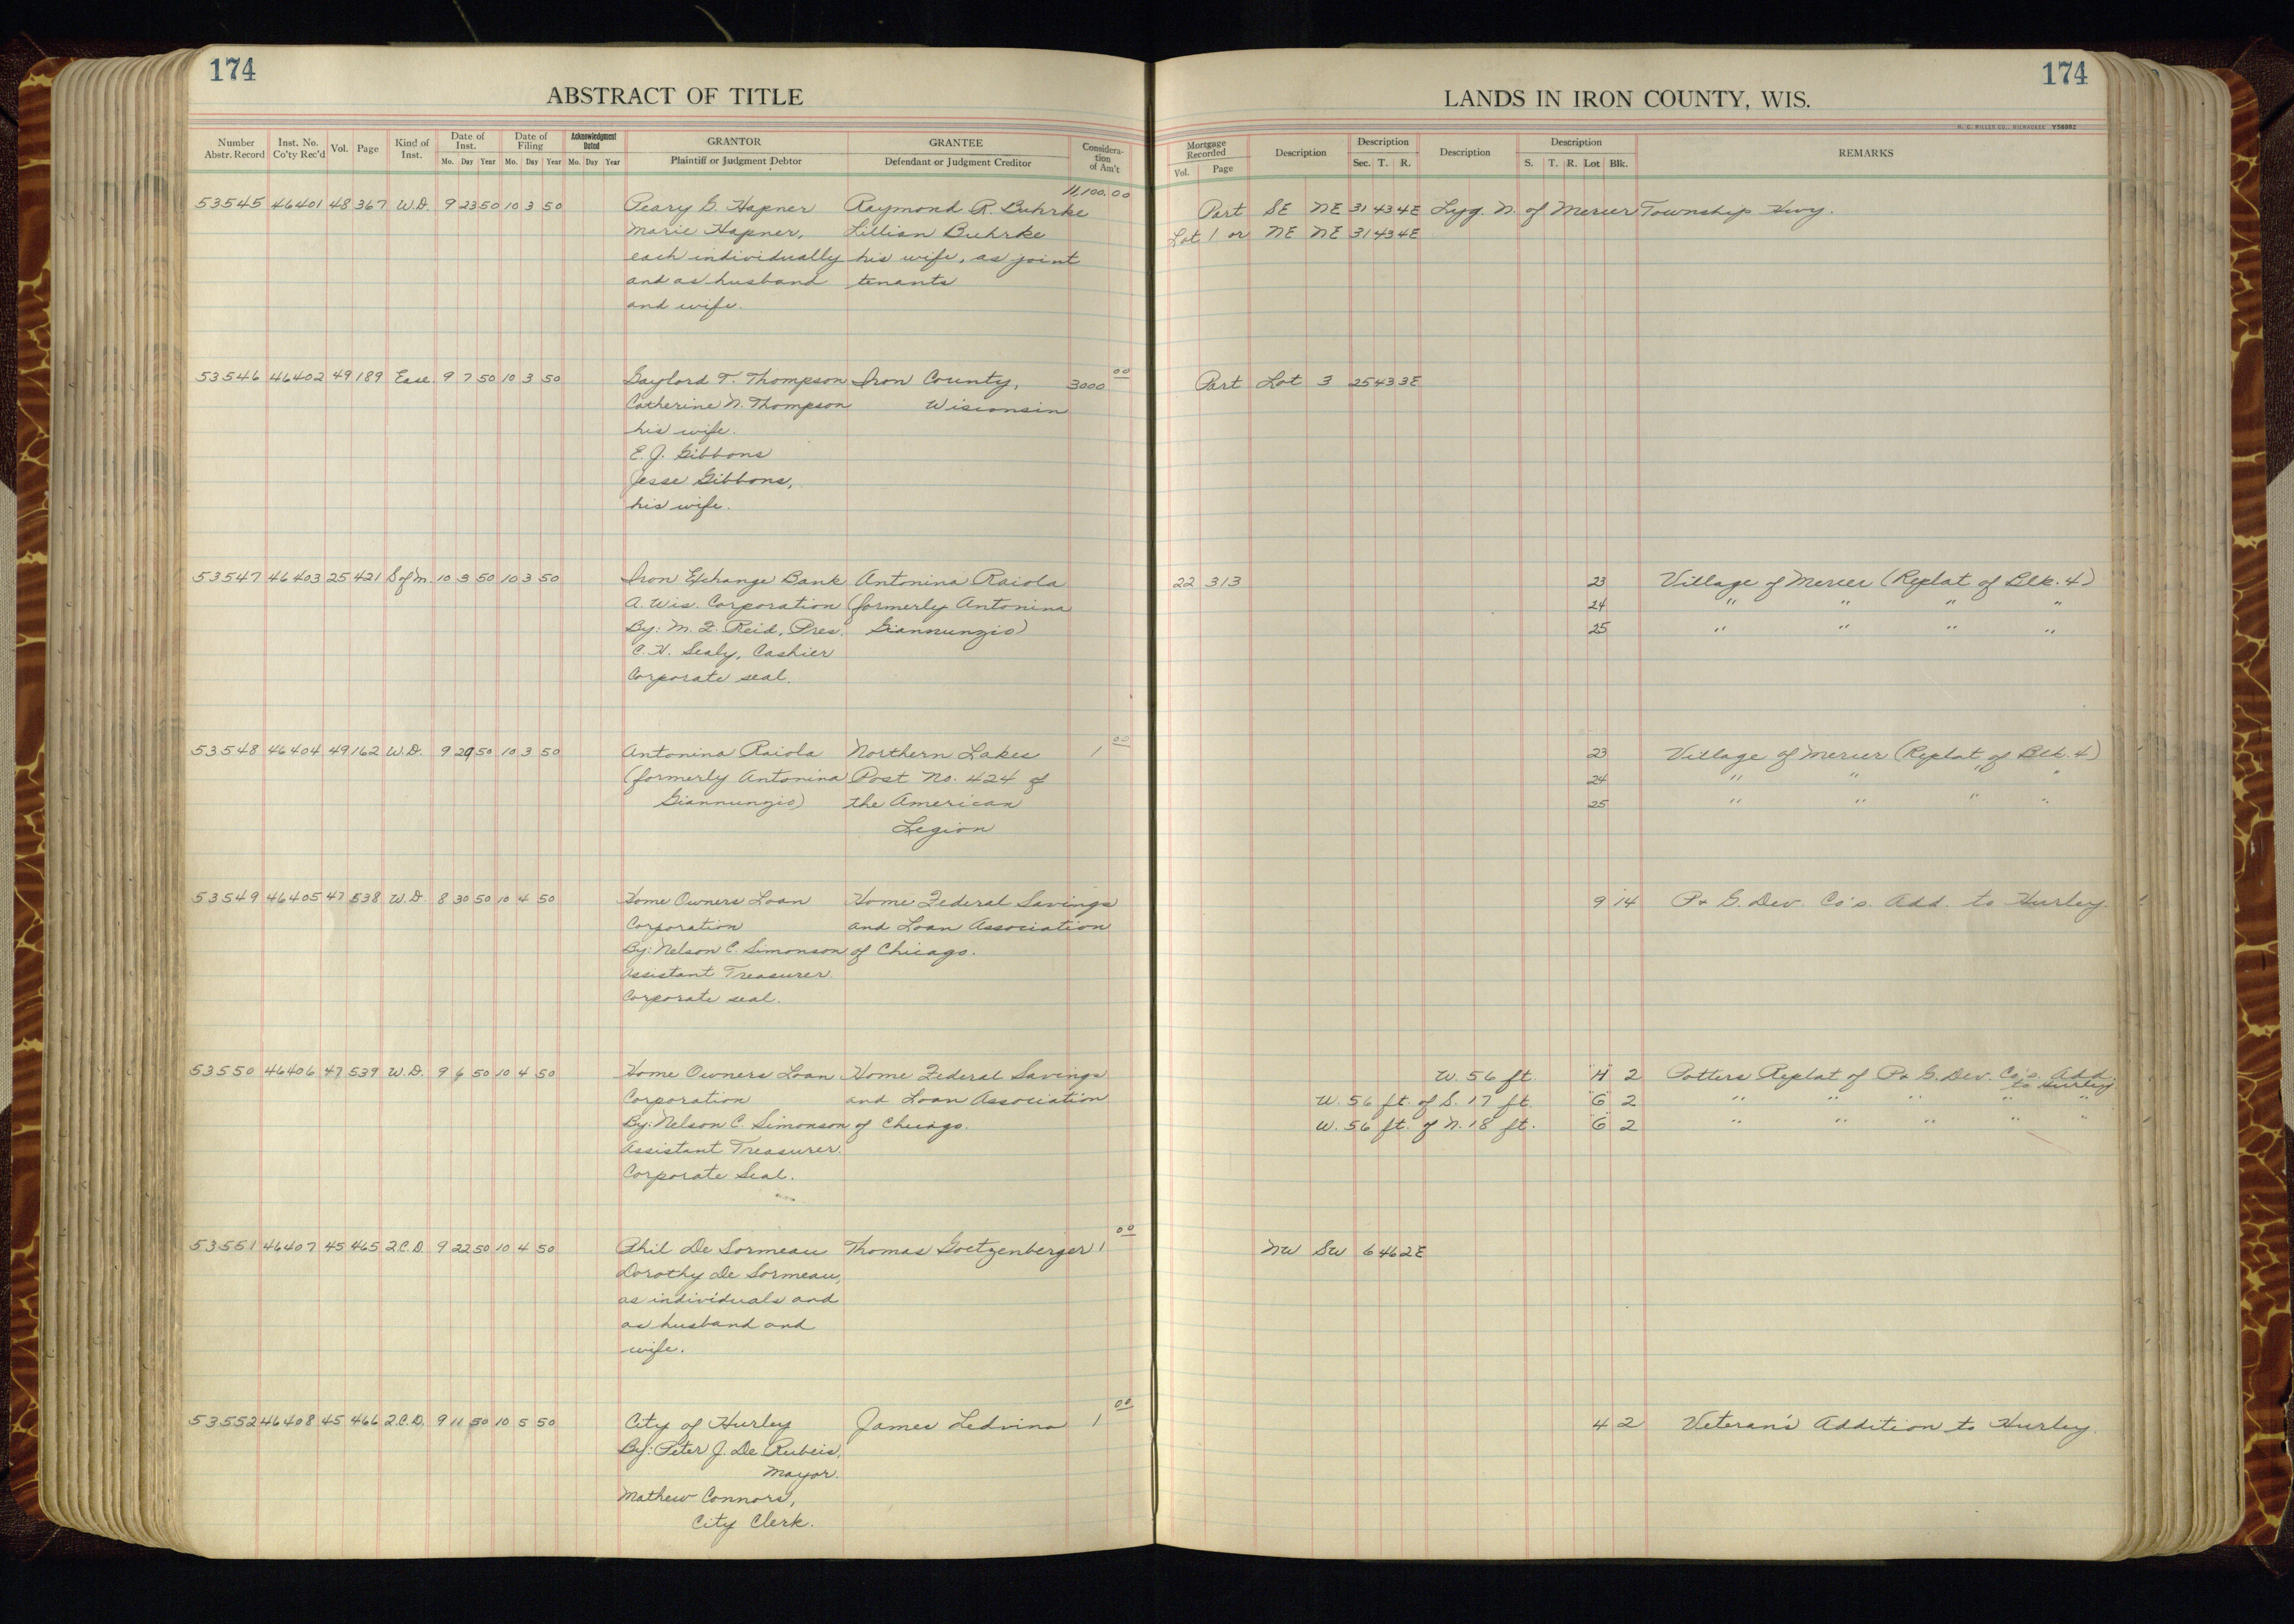 174
ABSTRACT OF TITLE
Number Abstr. Record Inst. No. Co'ty Rec'd Vol. Page Kind of Inst. Date of Inst. Mo. Day Year Date of Filing Mo. Day Year Acknowledgment Dated Mo. Day Year GRANTOR Plaintiff or Judgment Debtor GRANTEE Defendant or Judgment Creditor Consideration of Am't
53545 46401 48 367 W.D. 9 23 50 10 3 50 Peary G. Hapner Raymond R. Buhrke 11,100.00
Marie Hapner, Lillian Buhrke
each individually his wife, as joint
and as husband tenants
and wife.
53546 46402 49 189 Ease. 9 7 50 10 3 50 Gaylord T. Thompson Iron County, 3000 00
Catherine N. Thompson Wisconsin
his wife.
E. J. Gibbons
Jesse Gibbons,
his wife.
53547 46403 25 421 S of M. 10 3 50 10 3 50 Iron Exchange Bank Antonina Raiola
A. Wis. Corporation (formerly Antonina
By: M. F. Reid, Pres. Giannunzio)
C. H. Sealy, Cashier
Corporate seal.
53548 46404 49 162 W.D. 9 29 50 10 3 50 Antonina Raiola Northern Lakes 1 00
(formerly Antonina Post No. 424 of
Giannunzio) the American
Legion
53549 46405 47 538 W.D. 8 30 50 10 4 50 Home Owners Loan Home Federal Savings
Corporation and Loan Association
By: Nelson C. Simonson of Chicago.
Assistant Treasurer.
Corporate seal.
53550 46406 47 539 W.D. 9 6 50 10 4 50 Home Owners Loan Home Federal Savings
Corporation and Loan Association
By: Nelson C. Simonson of Chicago.
Assistant Treasurer.
Corporate Seal.
53551 46407 45 465 2.C.D. 9 22 50 10 4 50 Phil De Sormeau Thomas Goetzenberger 1 00
Dorothy De Sormeau,
as individuals and
as husband and
wife.
53552 46408 45 466 2.C.D. 9 11 50 10 5 50 City of Hurley James Ledvina 1 00
By: Peter J. De Rubeis,
Mayor.
Mathew Connors,
City Clerk.
174
LANDS IN IRON COUNTY, WIS.
H. C. MILLER CO., MILWAUKEE
Mortgage Recorded Vol. Page Description Description Sec. T. R. Description Description S. T. R. Lot Blk. REMARKS
Part SE NE 31 43 4E Lyg. N. of Mercer Township Hwy.
Lot 1 or NE NE 31 43 4E
Part Lot 3 25 43 3E
22 313 23 Village of Mercer (Replat of Blk. 4)
24 " " " "
25 " " " "
23 Village of Mercer (Replat of Blk. 4)
24 " " " "
25 " " " "
9 14 P. & G. Dev. Co's. Add. to Hurley.
W. 56 ft. "H" 2 Potters Replat of P. & G. Dev. Co's. Add.
to Hurley
W. 56 ft. of S. 17 ft. "G" 2 " " " " "
W. 56 ft. of N. 18 ft. "G" 2 " " " " "
NW SW 6 46 2E
4 2 Veteran's Addition to Hurley.